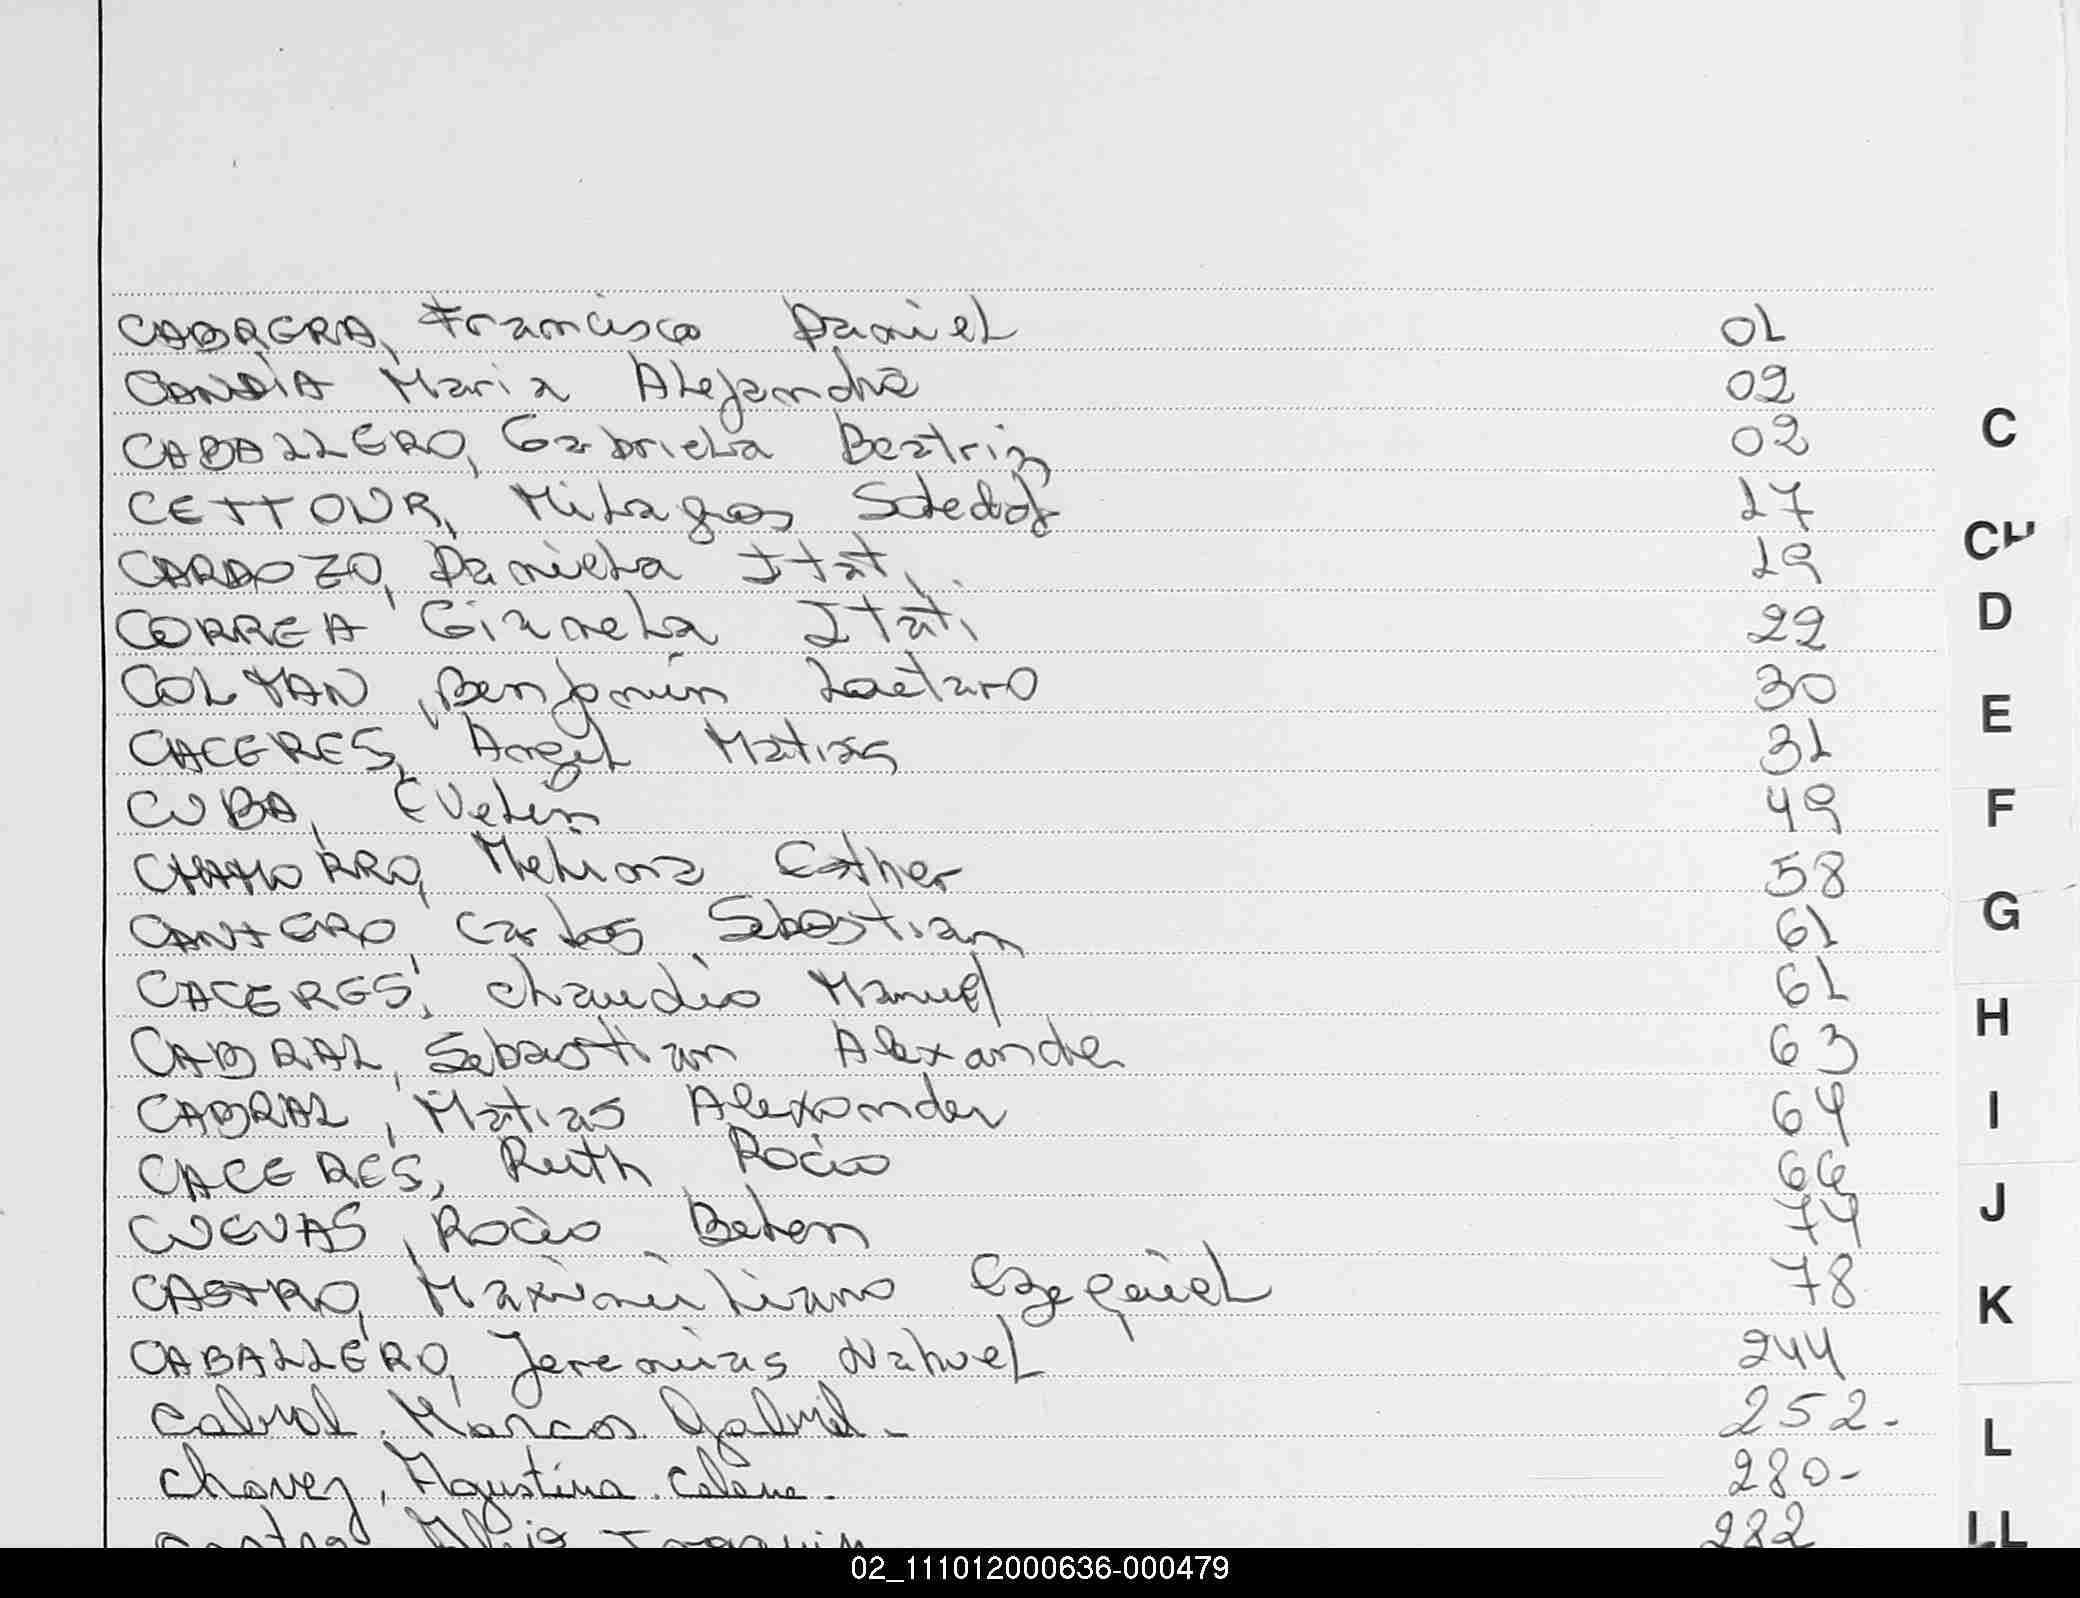 CABRERA, Francisco Daniel 01
CANDIA Maria Alejandra 02
CABALLERO, Gabriela Beatriz 02
C
CETTOUR, Milagros Soledad 17
CH
CARDOZO, Daniela Itati 19
CORREA Gianela Itati 22
D
COLMAN, Benjamin Laetaro 30
E
CACERES, Angel Matias 31
CUBA, Evelin 49
F
CHAMORRO, Meliona Esther 58
CANTERO, Carlos Sebastian 61
G
CACERES, Claudio Manuel 61
H
CABRAL, Sebastian Alexander 63
CABRAL, Matias Alexander 64
I
CACERES, Ruth Rocio 66
CUEVAS, Rocio Belen 74
J
CASTRO, Maximiliano Ezequiel 78
K
CABALLERO, Jeremias Nahuel 244
Cabral, Marcos Gabriel. 252-
L
Chavez, Agustina 280-
Joaquin 282
LL
02_111012000636-000479